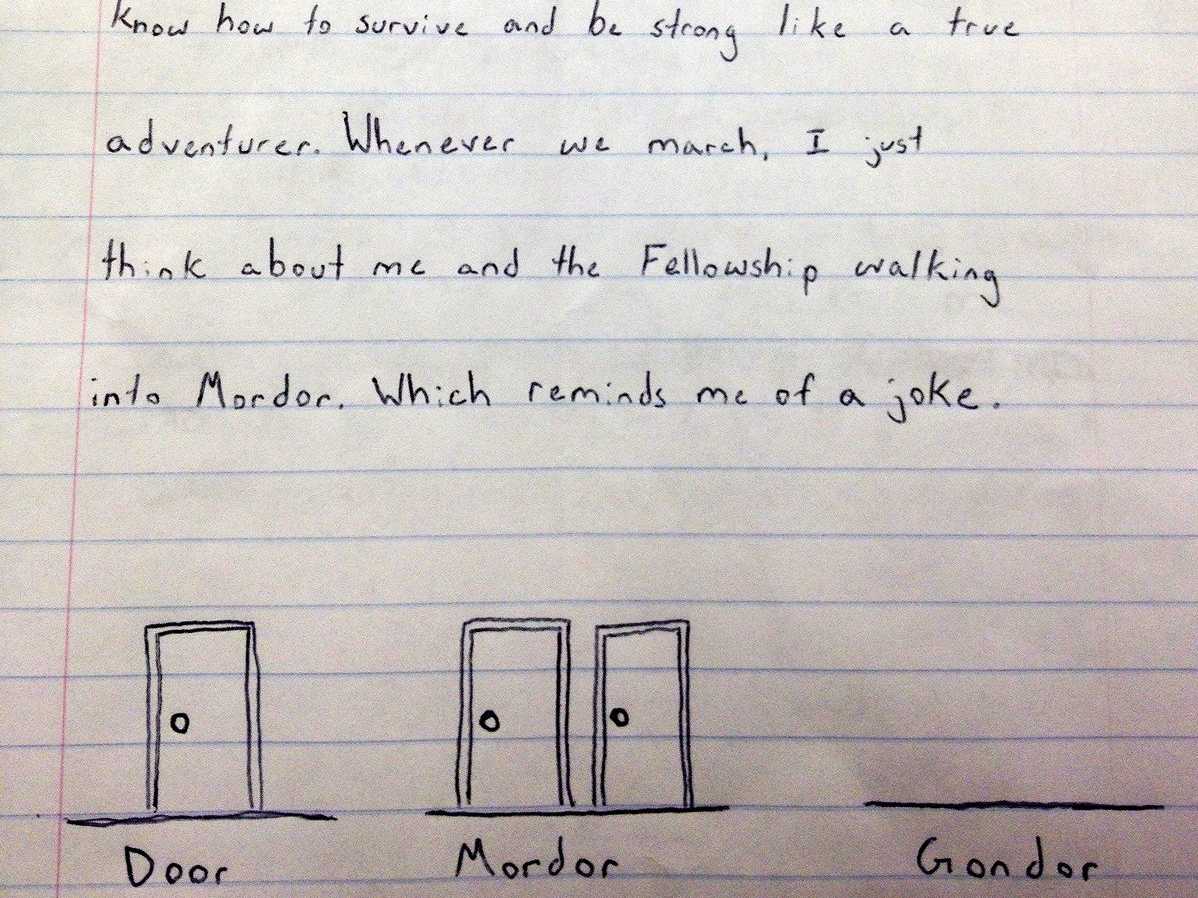 know how to survive and be strong like a true
adventurer. Whenever we march, I just
think about me and the Fellowship walking
into Mordor. Which reminds me of a joke.
Door Mordor Gondor